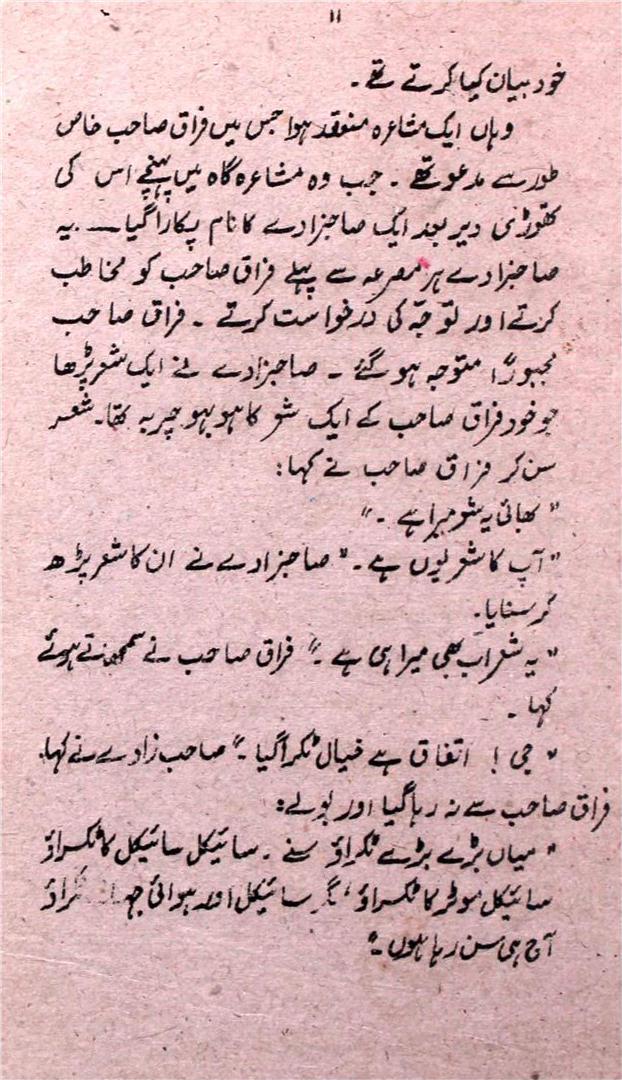 ۱۱
خود بیان کیا کرتے تھے۔
وہاں ایک مشاعرہ منعقد ہوا جس میں فراق صاحب خاص
طور سے مدعو تھے۔ جب وہ مشاعرہ گاہ میں پہنچے اس کی
تھوڑی دیر بعد ایک صاحبزادے کا نام پکارا گیا ــــ یہ
صاحبزادے ہر مصرعہ سے پہلے فراق صاحب کو مخاطب
کرتے اور توجّہ کی درخواست کرتے۔ فراق صاحب
مجبوراً متوجہ ہو گئے۔ صاحبزادے نے ایک شعر پڑھا
جو خود فراق صاحب کے ایک شعر کا ہو بہو چربہ تھا۔ شعر
سن کر فراق صاحب نے کہا:
"بھائی یہ شعر میرا ہے۔"
"آپ کا شعر یوں ہے۔" صاحبزادے نے ان کا شعر پڑھ
کر سنایا۔
"یہ شعر اب بھی میرا ہی ہے۔" فراق صاحب نے ہوئے
کہا۔
"جی! اتفاق ہے خیال ٹکرا گیا۔" صاحب زادے نے کہا۔
فراق صاحب سے نہ رہا گیا اور بولے:
"میاں بڑے بڑے ٹکراؤ سنے۔ سائیکل سائیکل کا ٹکراؤ
سائیکل موٹر کا ٹکراؤ، مگر سائیکل اور ہوائی جہاز ٹکراؤ
آج ہی سن رہا ہوں۔"